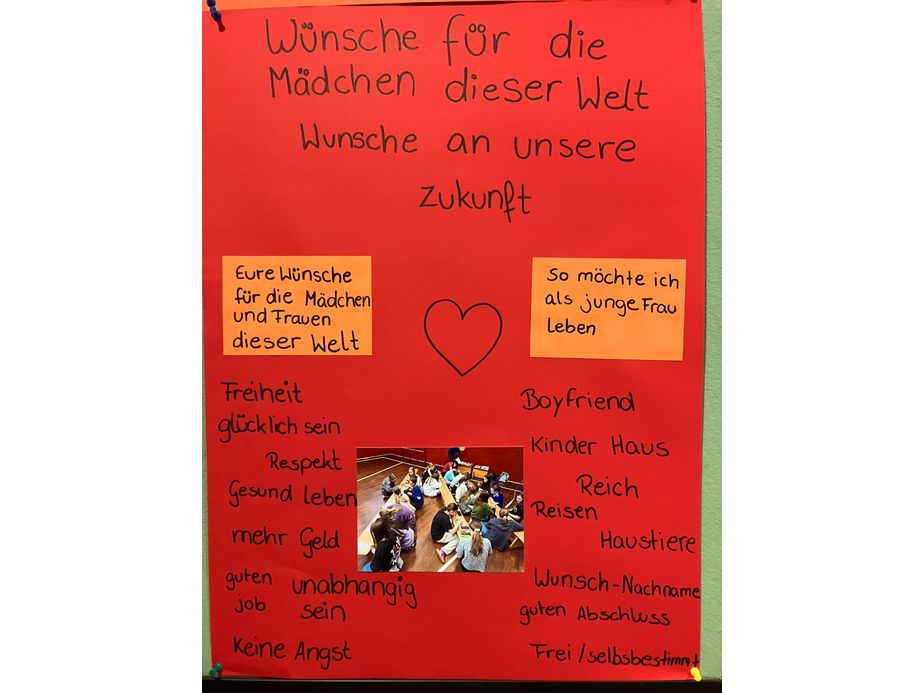 Wünsche für die
Mädchen dieser Welt
Wunsche an unsere
Zukunft
Eure Wünsche
für die Mädchen
und Frauen
dieser Welt
So möchte ich
als junge Frau
leben
Freiheit
glücklich sein
Respekt
Gesund leben
mehr Geld
guten
job
unabhangig
sein
Keine Angst
Boyfriend
Kinder Haus
Reich
Reisen
Haustiere
Wunsch-Nachname
guten Abschluss
Frei/selbsbestimmt